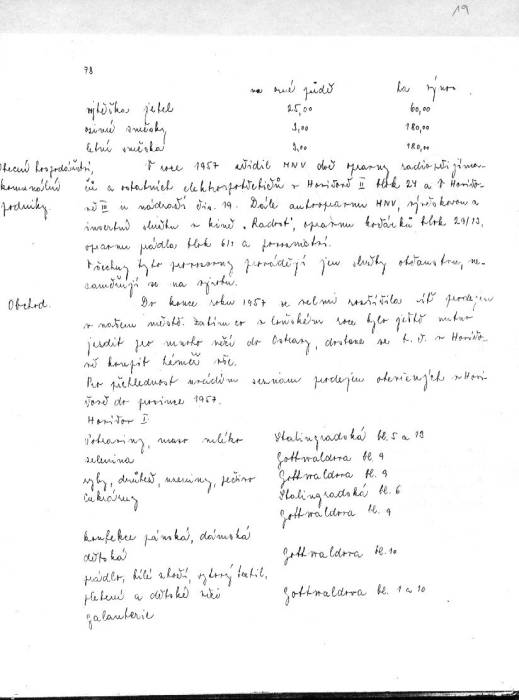 19
78
na orné půdě ha výnos
vojtěška jetel 25,00 60,00
ozimé směsky 3,00 180,00
letní směska 3,00 180,00
Obecní hospodářství, V roce 1957 zřídil MNV dvě opravny radiopřijíma-
komunální čů a ostatních elektrospotřebičů v Havířově II blok 24 a v Havířo-
podniky. vě III u nádraží čís. 19. Dále autoopravnu MNV, výškovou a
insertní službu v kině „Radost", opravnu kočárků blok 29/13,
opravnu prádla blok 6/1 a
Všechny tyto provozovny provádějí jen služby občanstvu, ne-
zaměřují se na výrobu.
Obchod. Do konce roku 1957 se velmi rozšířila síť prodejen
v našem městě. Zatím co v loňském roce bylo ještě nutno
jezdit pro mnoho věcí do Ostravy, dostane se t. č. v Havířo-
vě koupit téměř vše.
Pro přehlednost uvádím seznam prodejen otevřených v Haví-
řově do prosince 1957.
Havířov I.
Potraviny, maso mléko Stalingradská bl. 5 a 13
zelenina Gottwaldova bl. 9
ryby, drůbež, uzeniny, pečivo Gottwaldova bl. 9
Cukrárny Stalingradská bl. 6
Gottwaldova bl. 9
konfekce pánská, dámská
dětská Gottwaldova bl. 10
prádlo, bílé zboží, bytový textil,
pletení a dětské věci Gottwaldova bl. 1 a 10
galanterie